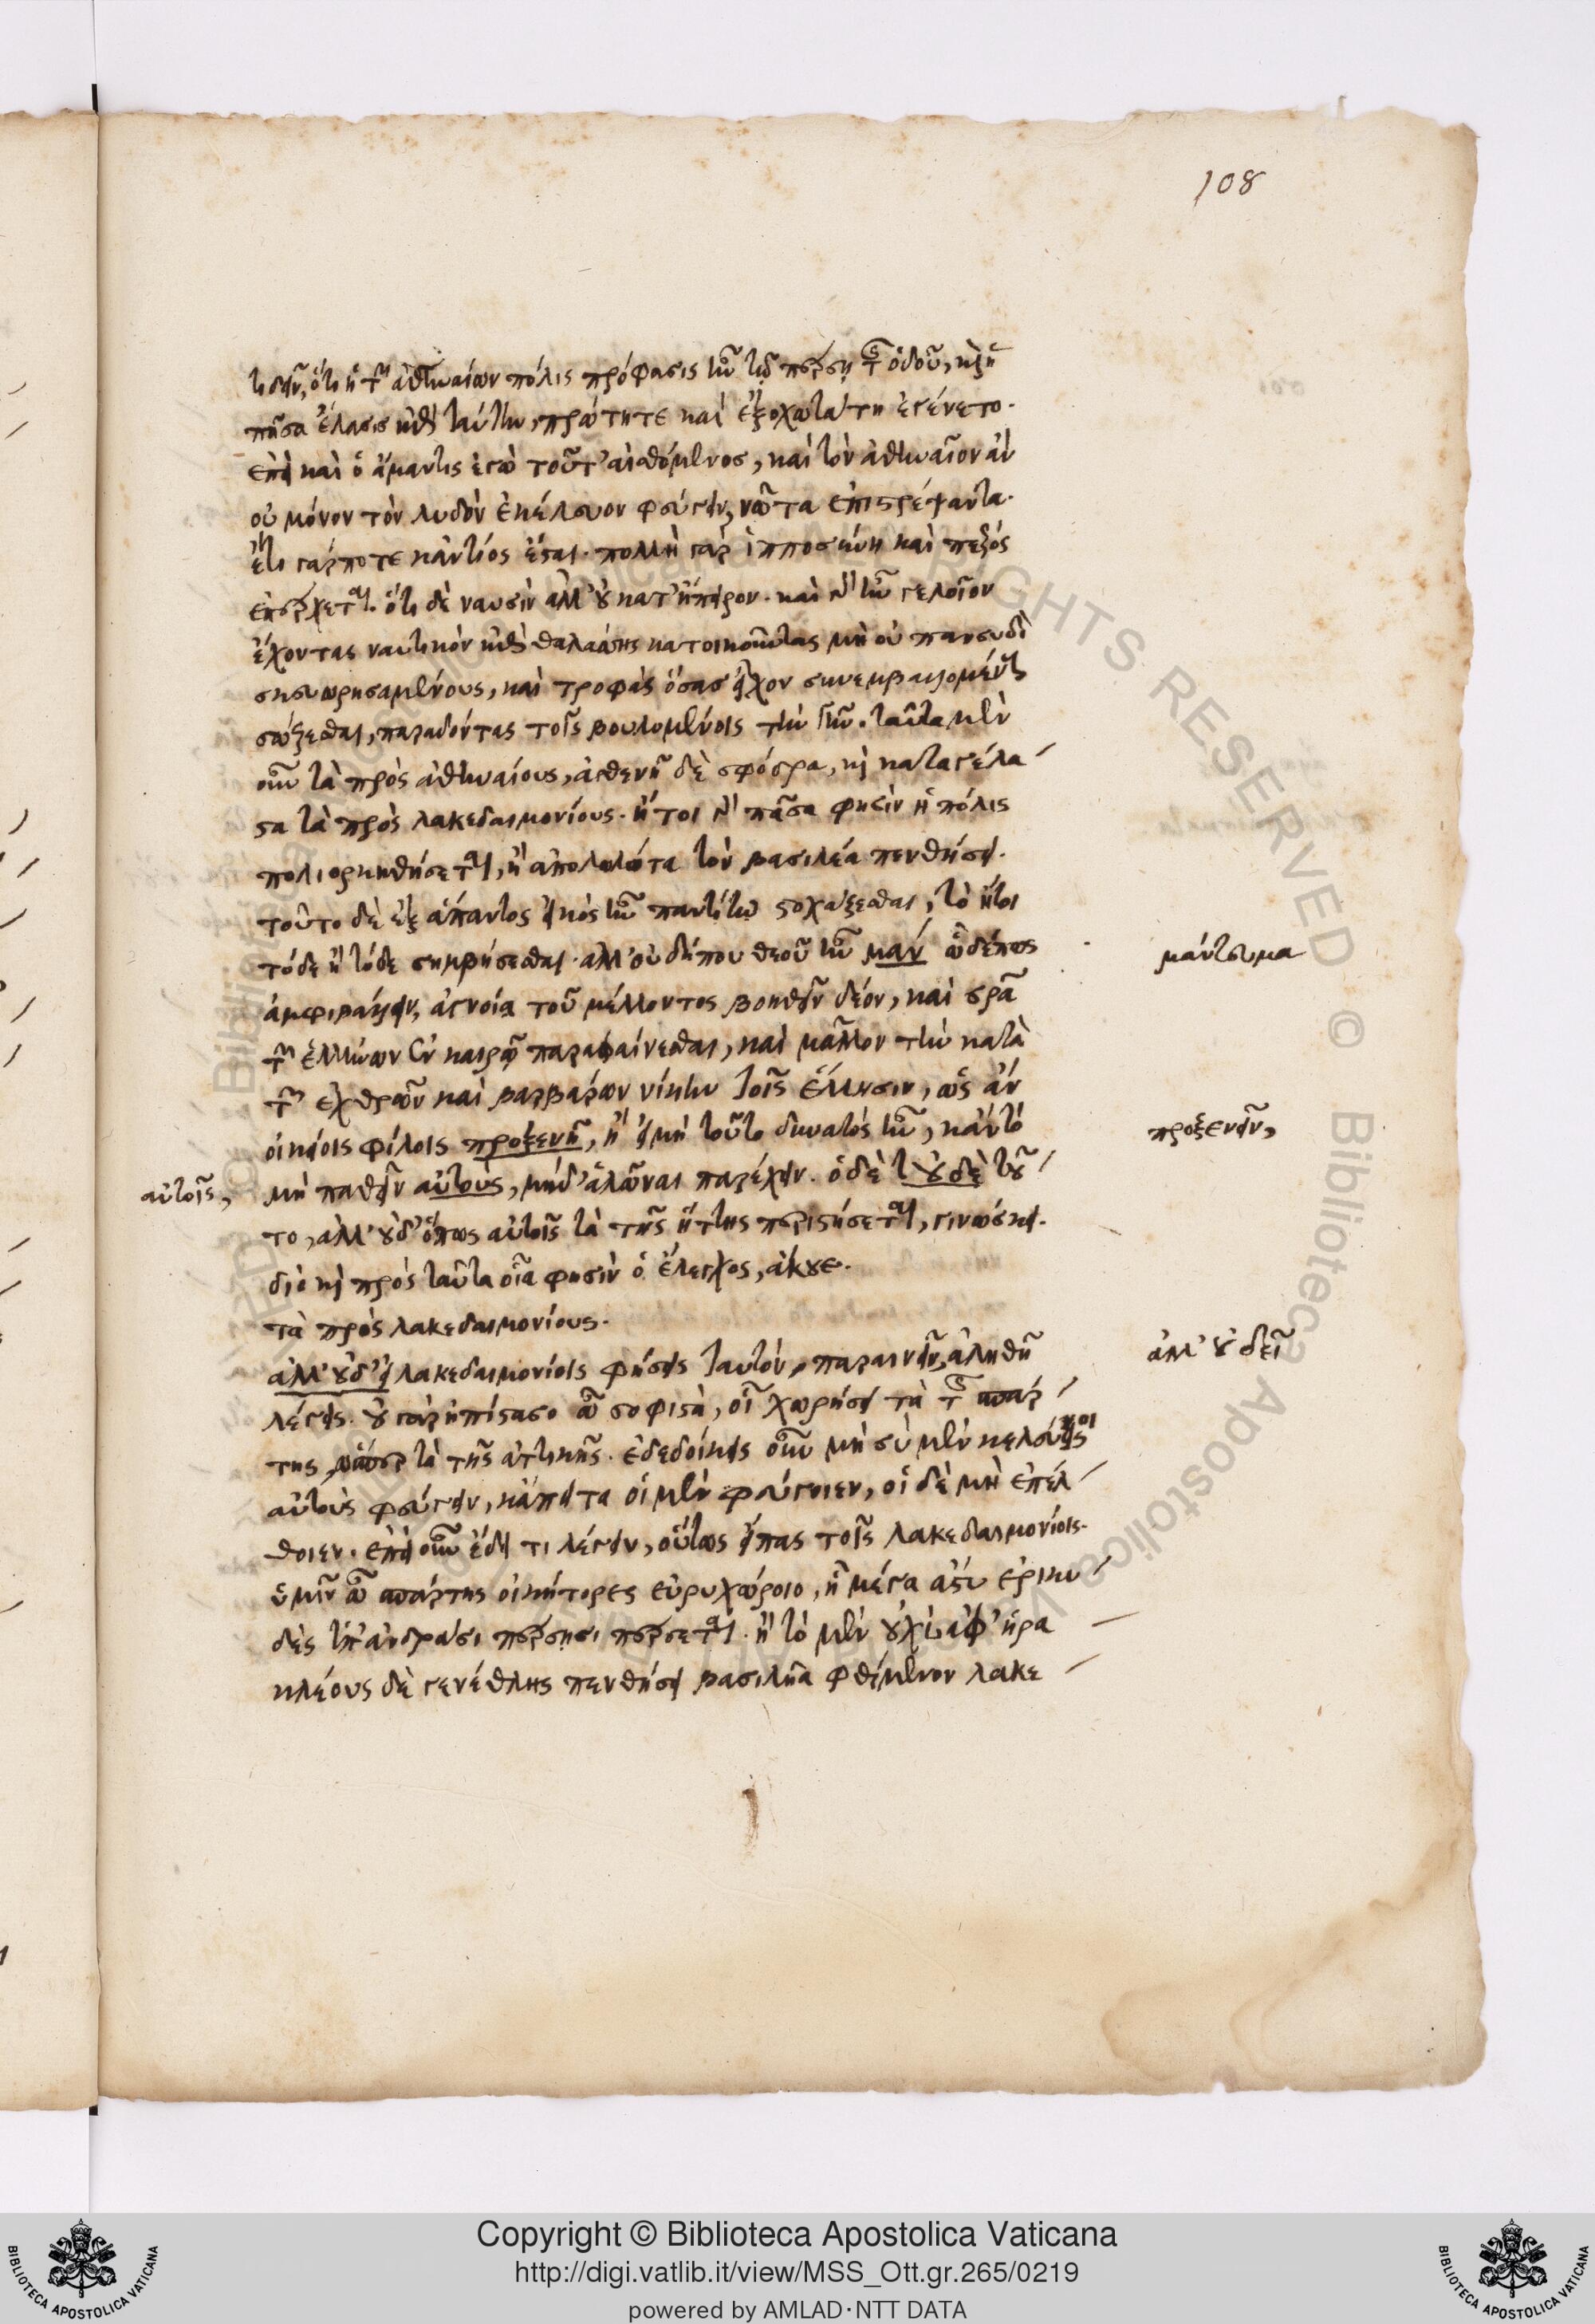 108
τιδεῖν, ὅτι ἡ τῶν ἀθηναίων πόλις πρόφασις ἦν τῷ πέρσῃ τῆς ὁδοῦ, καὶ ἡ
πᾶσα ἔλασις ἐπὶ ταύτην, πρώτη τε καὶ ἐξοχωτάτη ἐγένετο.
ἐπεὶ καὶ ὁ ἄμαντις ἐγὼ τοῦτ' αἰσθόμενος, καὶ τὸν ἀθηναῖον ἂν
οὐ μόνον τὸν λυδὸν ἐκέλευον φεύγειν, νῶτα ἐπιστρέψαντα.
ἔτι γάρ ποτε κἀντίος ἔσται. πολλὴ γὰρ ἱπποσύνη καὶ πεζὸς
ἐπέρχεται. ὅτι δὲ ναυσὶν ἀλλ' οὐ κατ' ἤπειρον. καὶ γὰρ ἦν γελοῖον
ἔχοντας ναυτικὸν ἐπὶ θαλάττης κατοικοῦντας μὴ οὐ πανσυδὶ
σκευωρησαμένους, καὶ τροφὰς ὅσας εἶχον συνεμβαλομένους
σώζεσθαι, παραδόντας τοῖς βουλομένοις τὴν γῆν. ταῦτα μὲν
οὖν τὰ πρὸς ἀθηναίους, ἀσθενῆ δὲ σφόδρα, καὶ καταγέλα
στα τὰ πρὸς λακεδαιμονίους. ἤτοι γὰρ πᾶσα φησὶν ἡ πόλις
πολιορκηθήσεται, ἢ ἀπολωλότα τὸν βασιλέα πενθήσει.
τοῦτο δὲ ἐξ ἅπαντος εἰκὸς ἦν παντί τῳ στοχάζεσθαι, τὸ ἤτοι
τόδε ἢ τόδε συμβήσεσθαι. ἀλλ' οὐ δήπου θεοῦ ἦν μαν ὧδέ πως
ἀμφιβάλλειν, ἀγνοίᾳ τοῦ μέλλοντος βοηθεῖν δέον, καὶ
τῶν ἑλλήνων ἐν καιρῷ παραφαίνεσθαι, καὶ μᾶλλον τὴν κατὰ
τῶν ἐχθρῶν καὶ βαρβάρων νίκην τοῖς ἕλλησιν, ὡς ἂν
οἰκείοις φίλοις προξενῆ, ἢ εἰ μὴ τοῦτο δυνατὸς ἦν, κἂν τὸ
μὴ παθεῖν αὐτοὺς, μήδ' ἁλῶναι παρέχειν. ὁ δὲ τ οὐδὲ τοῦ
το, ἀλλ' οὐδ' ὅπως αὐτοῖς τὰ τῆς ἥττης περιστήσεται, γινώσκει.
διὸ καὶ πρὸς ταῦτα οἷα φησὶν ὁ ἔλεγχος, ἄκουε.
τὰ πρὸς λακεδαιμονίους.
ἀλλ' οὐδ' εἰ λακεδαιμονίοις φήσεις ταυτόν, παραινεῖν, ἀληθῆ
λέγεις. οὐ γὰρ ἠπίστασο ὦ σοφιστὰ, οἷ χωρήσει τὰ τῆς σπάρ
της ὥσπερ τὰ τῆς ἀττικῆς. ἐδεδοίκεις οὖν μὴ σὺ μὲν κελεύσεις
αὐτοὺς φεύγειν, κἄπειτα οἱ μὲν φεύγοιεν, οἱ δὲ μὴ ἐπέλ
θοιεν. ἐπεὶ οὖν ἔδει τι λέγειν, οὕτως εἶπας τοῖς λακεδαιμονίοις.
ὑμῖν ὦ σπάρτης οἰκήτορες εὐρυχώροιο, ἢ μέγα ἄστυ ἐρικυ
δὲς ὑπ' ἀνδράσι πέρσῃσι πέρσεται. ἢ τὸ μὲν οὐχὶ ἀφ' ἡρα
κλέους δὲ γενέθλης πενθήσει βασιλῆα φθίμενον λακε
μάντευμα
προξενεῖν,
αὐτοῖς,
ἀλλ' οὐδεῖ
Copyright © Biblioteca Apostolica Vaticana
http://digi.vatlib.it/view/MSS_Ott.gr.265/0219
powered by AMLAD·NTT DATA
BIBLIOTECA APOSTOLICA VATICANA
BIBLIOTECA APOSTOLICA VATICANA